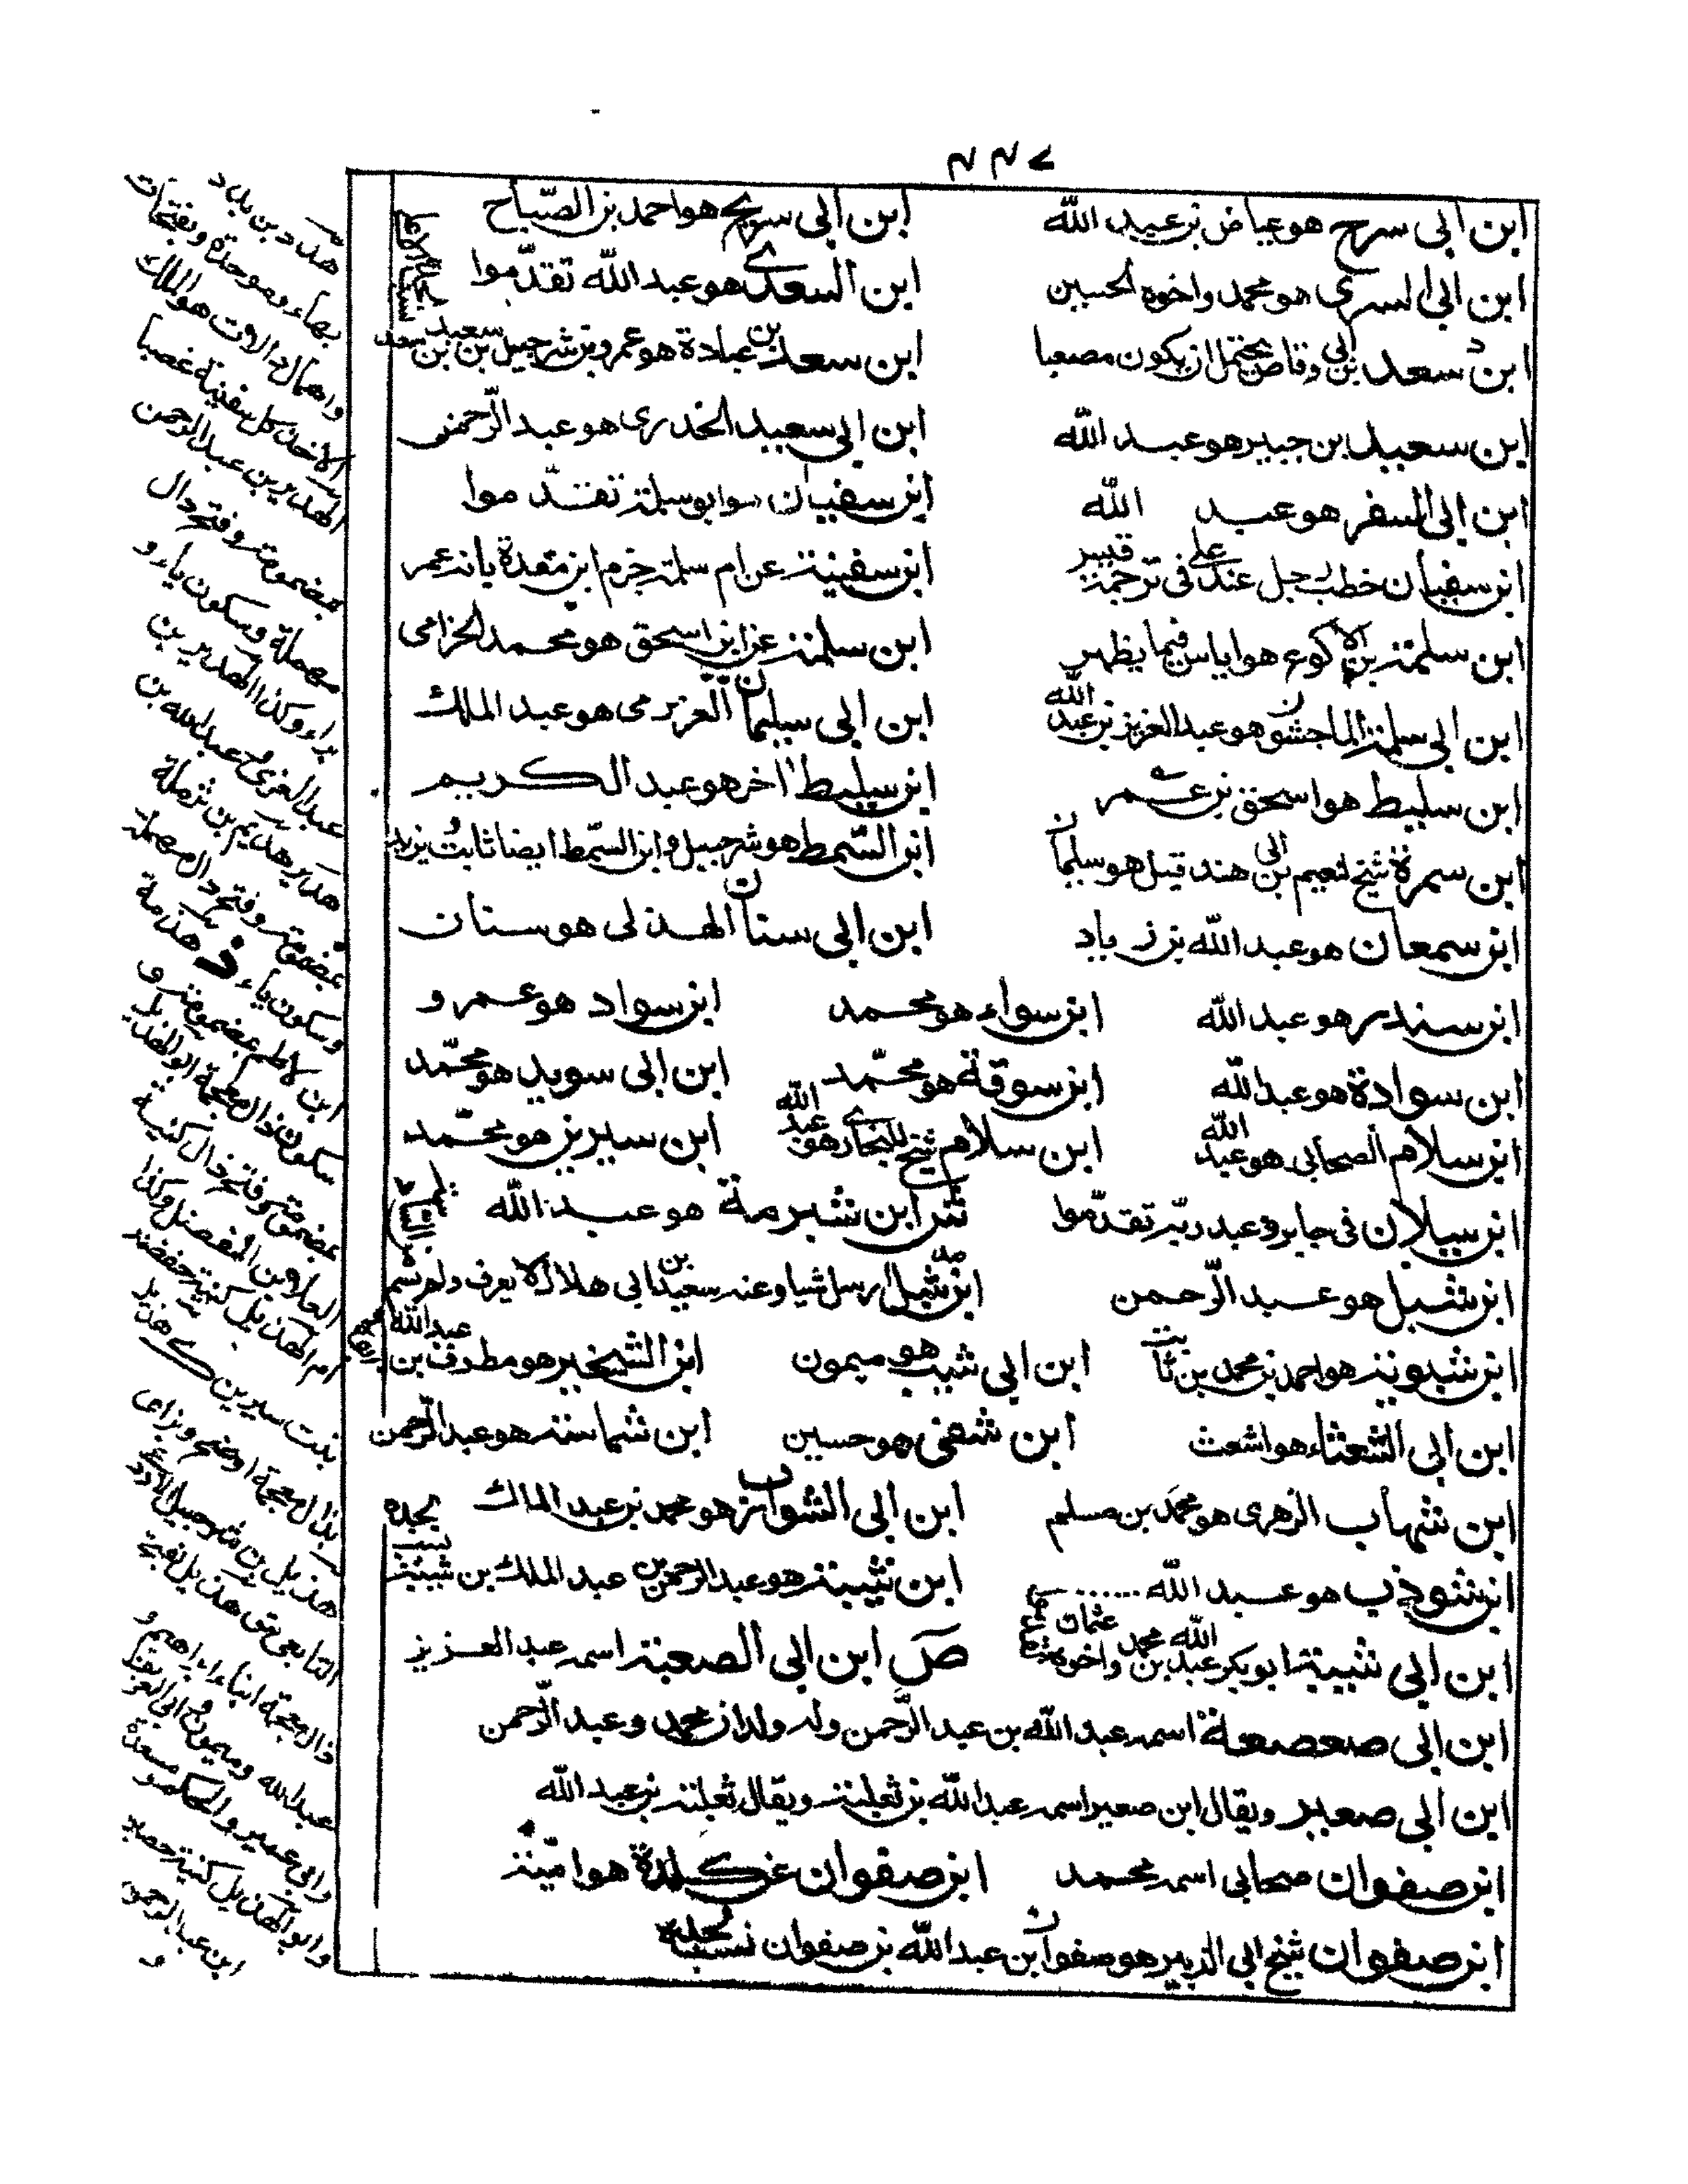 ابن ابى سرح هو عياض بن عبد الله ابن ابى سريج هو احمد بن الصّباح
ابن ابى السرى هو محمد واخوه الحسين ابن السعدى هو عبد الله تقدّموا
ابن سعد بن ابى وقاص يحتمل ان يكون مصعبا ابن سعد بن عبادة هو عمرو بن شرحبيل بن سعيد بن سعد
ابن سعيد بن جبير هو عبد الله ابن ابى سعيد الخدرى هو عبد الرّحمن
ابن ابى السفر هو عبد الله ابن سفيان هو ابو سلمة تقدّموا
ابن سفيان خطب رجل عند على فى ترجمة قيس ابن سفينة عن ام سلمة جزم ابن مندة بانه عمر
ابن سلمة بن الاكوع هو اياس فيما يظهر ابن سلمة عن ابن اسحق هو محمد الحزامى
ابن ابى سلمة الماجشون هو عبد العزيز بن عبد الله ابن ابى سليمان العزرمى هو عبد الملك
ابن سليط هو اسحق بن عمر ابن سليط اخر هو عبد الكريم
ابن سمرة شيخ لنعيم بن ابى هند قيل هو سليمان ابن السّمط هو شرحبيل وابن السّمط ايضا ثابت
ابن سمعان هو عبد الله بن زياد ابن ابى سنان الهذلى هو سنان
ابن سندر هو عبد الله ابن سواء هو محمد ابن سواد هو عمرو
ابن سوادة هو عبد الله ابن سوقة هو محمّد ابن ابى سويد هو محمّد
ابن سلام الصحابى هو عبد الله ابن سلام شيخ للبخارى هو عبد الله ابن سيرين هو محمّد
ابن سيلان فى جابر وعبد ربه تقدّموا ش ابن شبرمة هو عبد الله
ابن شبل هو عبد الرّحمن ابن شبل ارسل شيا وعنه سعيد بن ابى هلال لا يعرف ولم يسم
ابن شبوية هو احمد بن محمد بن ثابت ابن ابى شبيب هو ميمون ابن الشخير هو مطرف بن عبد الله
ابن ابى الشعثاء هو اشعث ابن شفى هو حسين ابن شماسة هو عبد الرّحمن
ابن شهاب الزهرى هو محمّد بن مسلم ابن ابى الشوارب هو محمد بن عبد الملك
ابن شوذب هو عبد الله ابن شيبة هو عبد الرحمن بن عبد الملك بن شيبة نسب لجده
ابن ابى شيبة ابو بكر عبد الله بن محمد واخوه عثمان ص ابن ابى الصعبة اسمه عبد العزيز
ابن ابى صعصعة اسمه عبد الله بن عبد الرّحمن وله ولدان محمد وعبد الرّحمن
ابن ابى صعير ويقال ابن صعير اسمه عبد الله بن ثعلبة ويقال ثعلبة بن عبد الله
ابن صفوان صحابى اسمه محمد ابن صفوان عن كلدة هو اميّة
ابن صفوان شيخ ابى الزبير هو صفوان بن عبد الله بن صفوان نسب لجده
هدد بن بدد
بهاء وموحدة وبفتحات
واهمال دالات هو الملك
الاخذ كل سفينة غصبا
الهدير بن عبد الرحمن
مضمومة وفتح دال
مهملة وسكون ياء و
براء وكذا الهدير بن
عبد العزى وعبد الله بن
هدير هديم بن ثرملة
بمضمومة وفتح دال مهملة
وسكون ياء
سكون ذال معجمة ابو الهذيل
بمضمومة وفتح ذال كنية
العلاء بن المفضل وكذا
ام الهذيل كنية حفصة
بنت سيرين
بذال معجمة
هذيل بن شرحبيل الاودى
التابعى
ذال معجمة ابناء ابراهيم و
عبد الله وميمون
وابو الهذيل كنية حصين
ابن عبد الرحمن